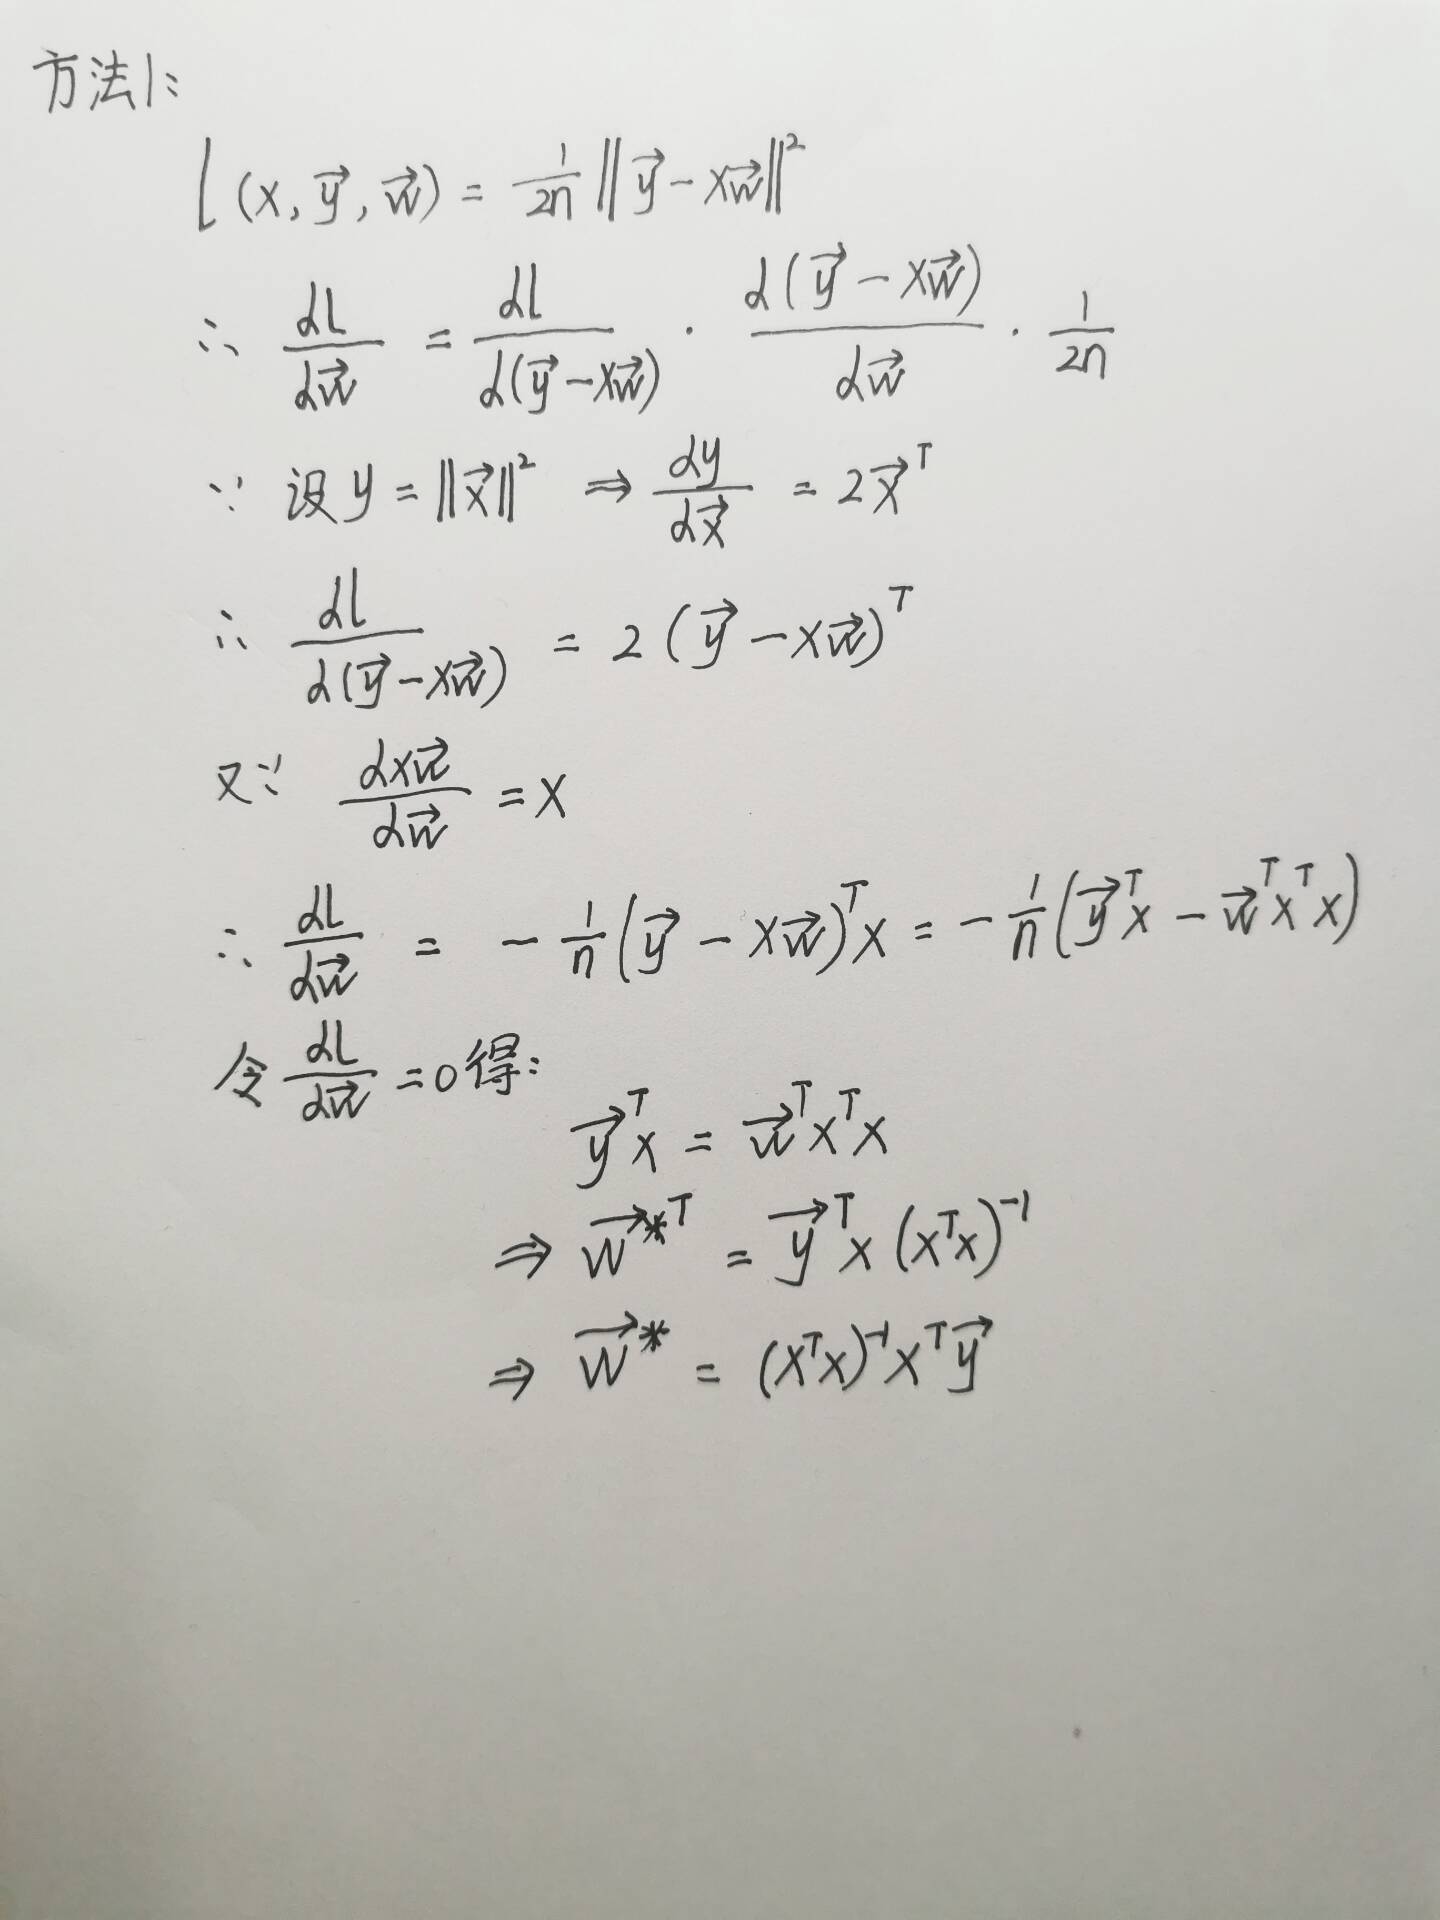 方法1:
l(x, y⃗, w⃗) = 1/2n ‖y⃗ - xw⃗‖²
∴ dl/dw⃗ = dl/d(y⃗ - xw⃗) · d(y⃗ - xw⃗)/dw⃗ · 1/2n
∵ 设 y = ‖x⃗‖² ⇒ dy/dx⃗ = 2x⃗ᵀ
∴ dl/d(y⃗ - xw⃗) = 2(y⃗ - xw⃗)ᵀ
又∵ dxw⃗/dw⃗ = x
∴ dl/dw⃗ = - 1/n (y⃗ - xw⃗)ᵀx = - 1/n (y⃗ᵀx - w⃗ᵀxᵀx)
令 dl/dw⃗ = 0 得:
y⃗ᵀx = w⃗ᵀxᵀx
⇒ w⃗*ᵀ = y⃗ᵀx(xᵀx)⁻¹
⇒ w⃗* = (xᵀx)⁻¹xᵀy⃗